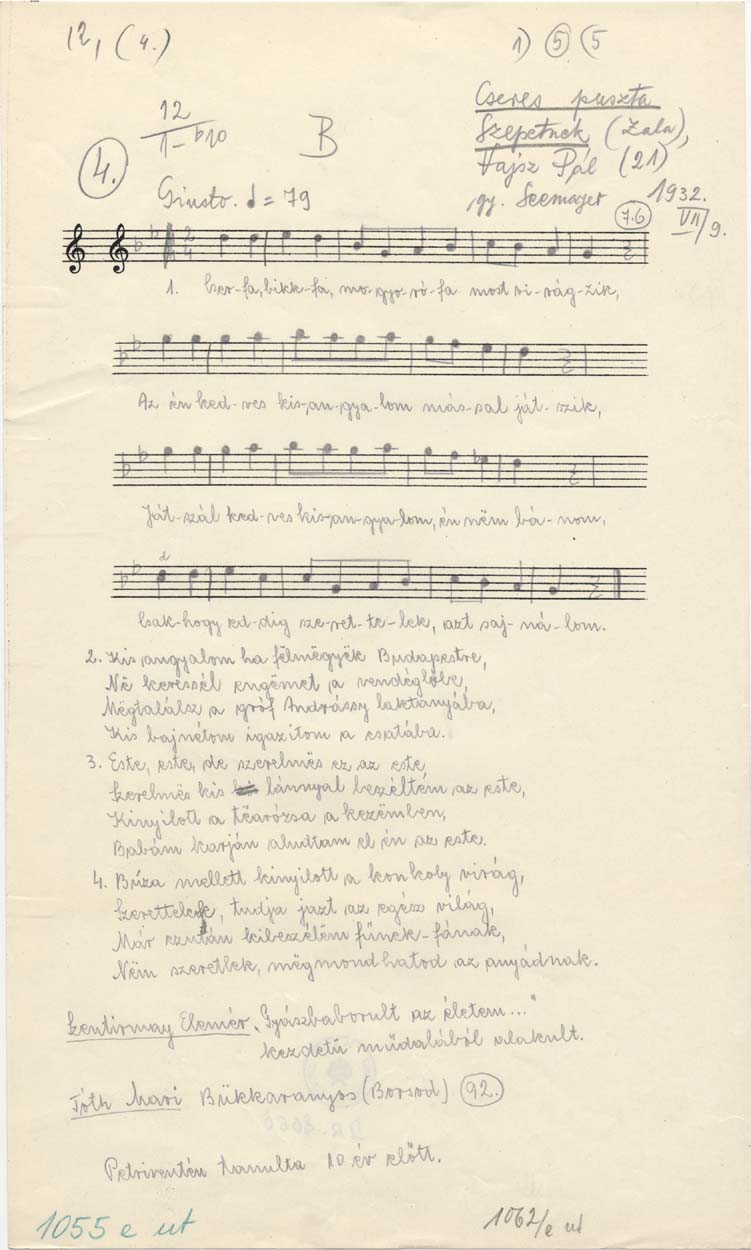 12, (4.)
1) 5 (5
Cseres puszta
12
1-b10
B
Szepetnek (Zala),
4.
Vajsz Pál (21)
Giusto. = 79
gy. Seemayer 1932.
VII/9.
7.6
1. Cser-fa, bikk-fa, mo-gyo-ró-fa most vi-rág-zik,
Az én ked-ves kis-an-gya-lom más-sal ját-szik,
Ját-szál ked-ves kis-an-gya-lom, én nëm bá-nom,
d
Csak-hogy ed-dig sze-ret-te-lek, azt saj-ná-lom.
2. Kis angyalom ha fëlmëgyëk Budapestre,
Në keressél engëmet a vendéglőbe,
Mëgtalálsz a gróf Andrássy laktanyába,
Kis bajnétom igazítom a csatába.
3. Este, este, de szerelmës ez az este,
Szerelmës kis lánnyal bezéltem az este,
Kinyilott a tëarózsa a kezëmben,
Babám karján aludtam el én az este.
4. Búza mellett kinyilott a konkoly virág,
Szerettelek, tudja jazt az egész világ,
Már ezután kibeszélëm fűnek-fának,
Nëm szeretlek, mëgmondhatod az anyádnak.
Szentirmay Elemér „Gyászbaborult az életem..."
kezdetű műdalából alakult.
Tóth Mari Bükkaranyos (Borsod) 92.
Petriventén tanulta 10 év előtt.
1055 e ut
1062/e ut